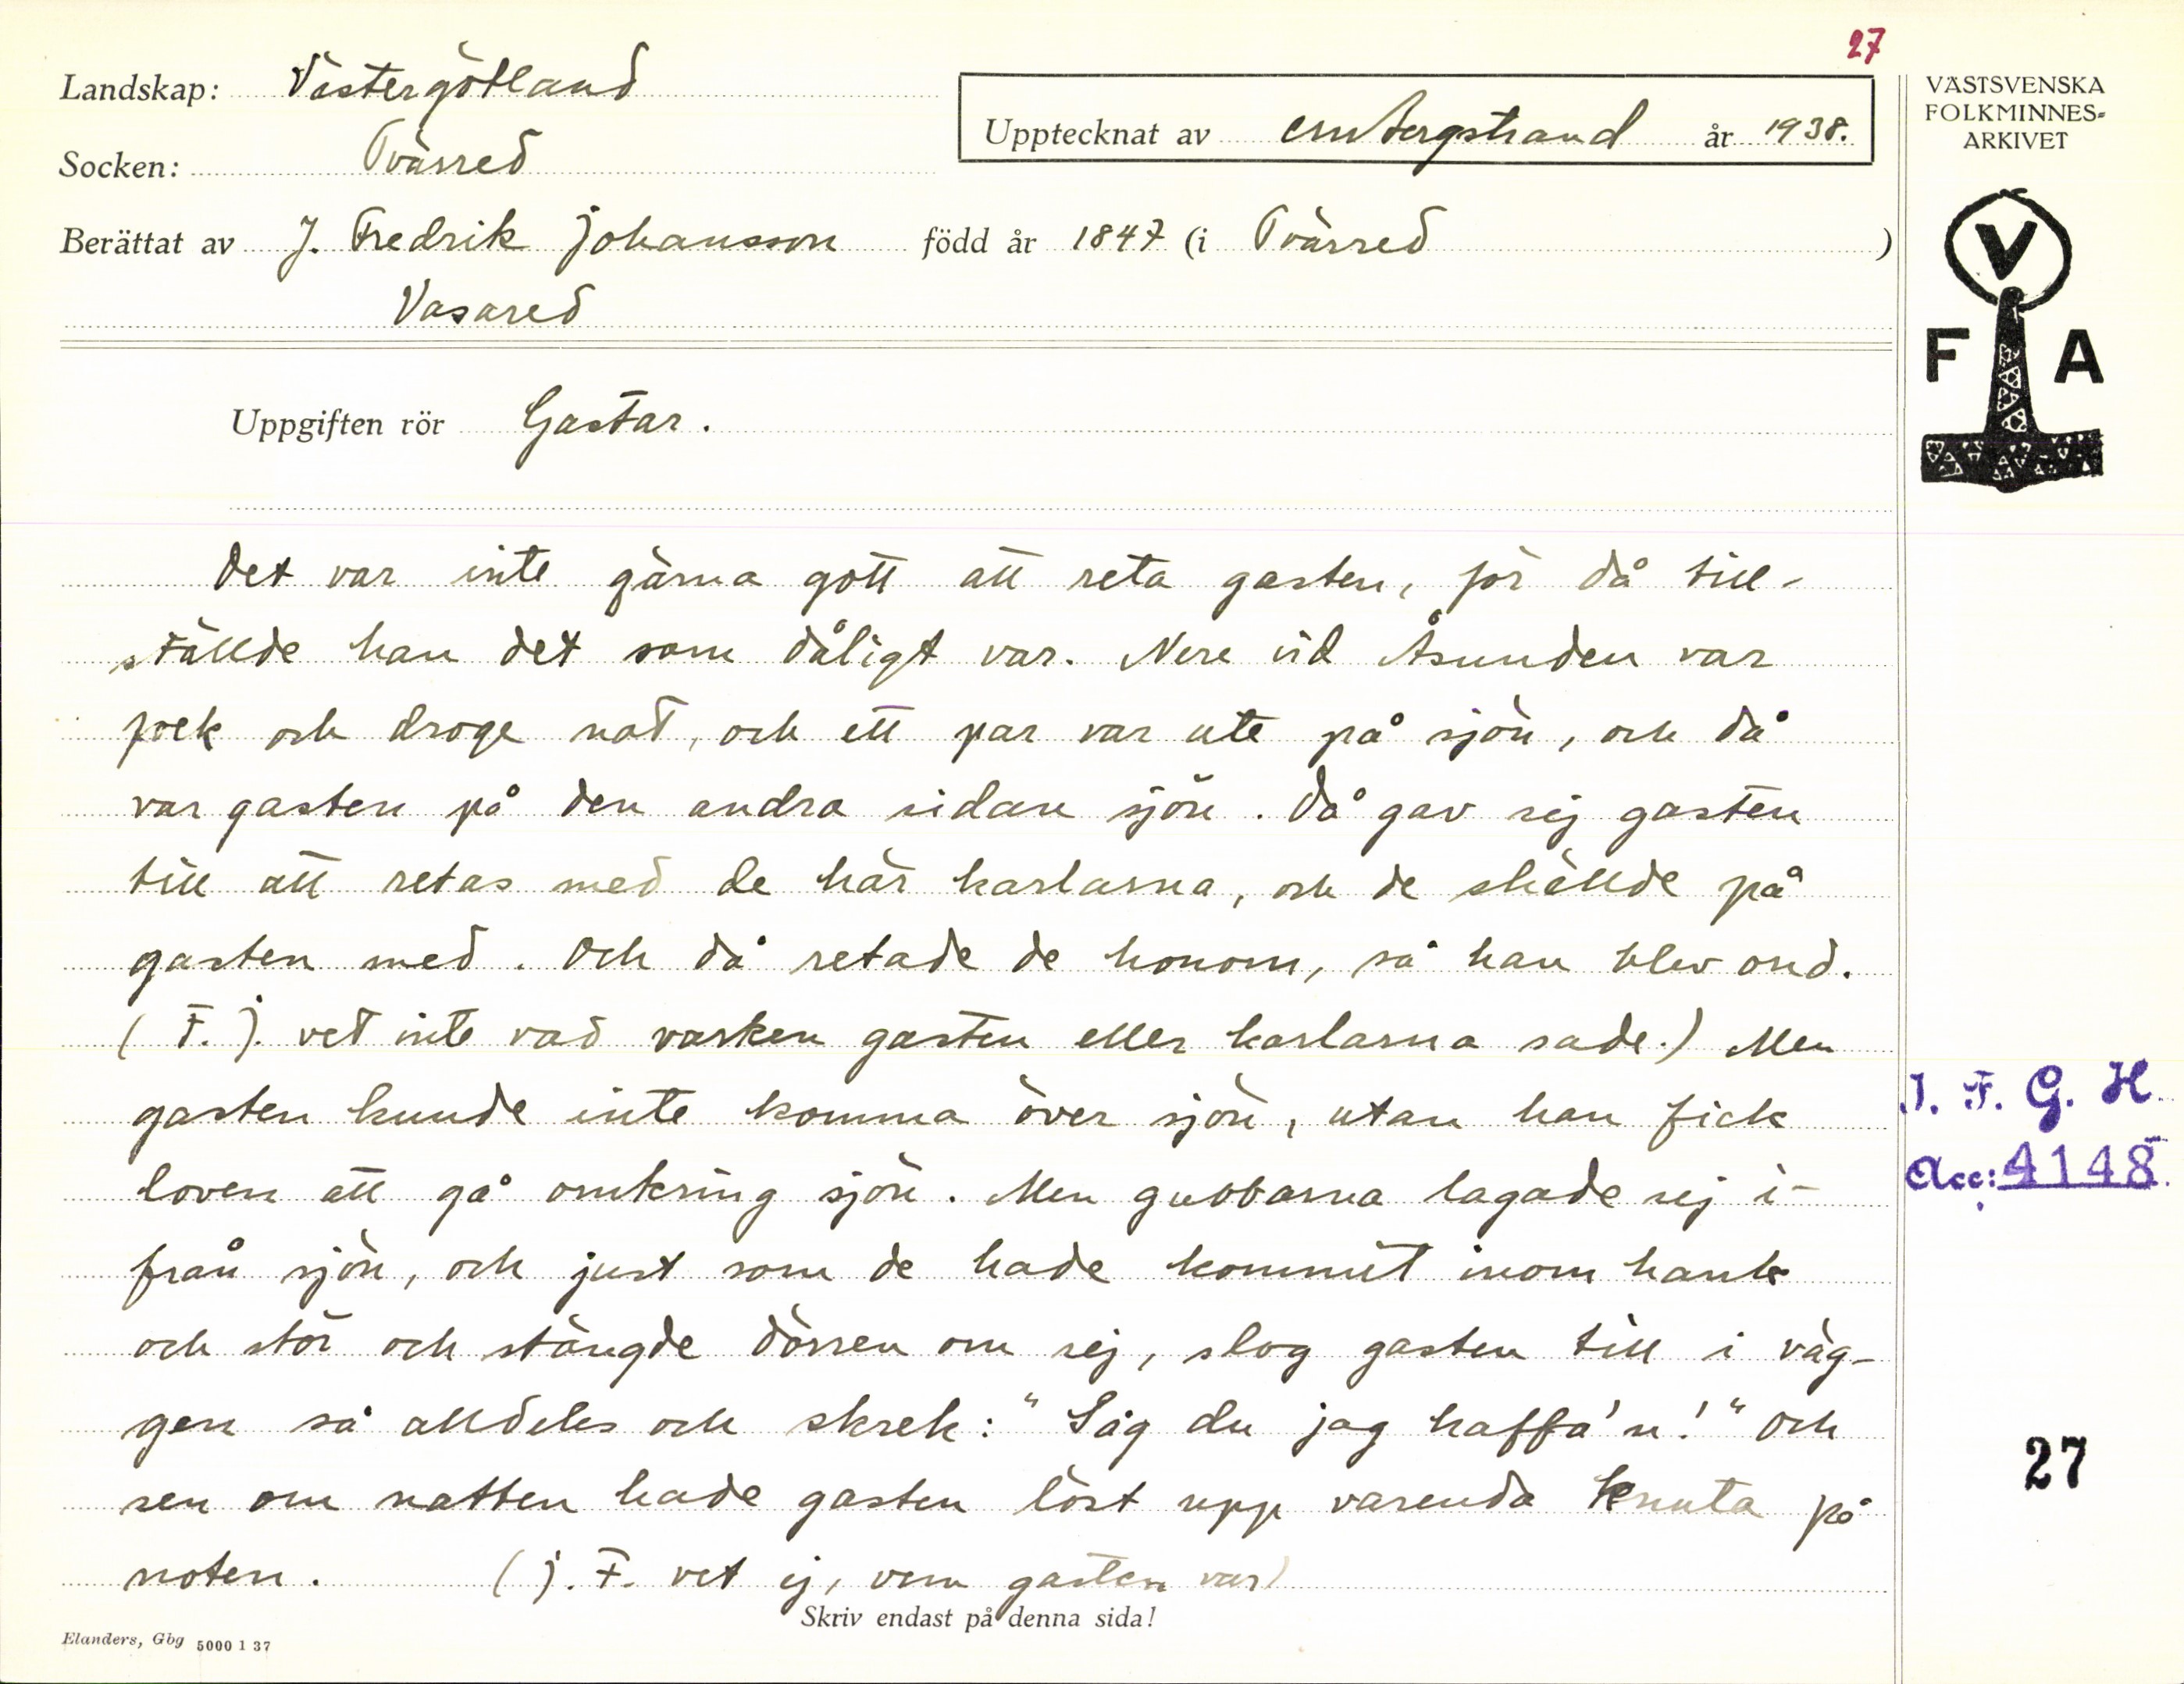 27
Landskap: Västergötland
VÄSTSVENSKA
FOLKMINNES=
ARKIVET
Upptecknat av CM Bergstrand år 1938.
Socken: Tvärred
Berättat av J. Fredrik Johansson född år 1847 (i Tvärred )
Vasared
V
F A
Uppgiften rör Gastar.
Det var inte gärna gott att reta gasten, för då till-
ställde han det som dåligt var. Nere vid Åsunden var
folk och droge not, och ett par var ute på sjön, och då
var gasten på den andra sidan sjön. Då gav sig gasten
till att retas med de här karlarna, och de skällde på
gasten med. Och då retade de honom, så han blev ond.
(F. J. vet inte vad varken gasten eller karlarna sade.) Men
gasten kunde inte komma över sjön, utan han fick
loven att gå omkring sjön. Men gubbarna lagade sej i-
från sjön, och just som de hade kommit inom hank
och stör och stängde dörren om sej, slog gasten till i väg-
gen så alldeles och skrek: "Såg du jag haffa'n!" Och
sen om natten hade gasten löst upp varenda knuta på
noten. (J. F. vet ej, vem gasten var)
I. F. G. H.
Acc: 4148
27
Skriv endast på denna sida!
Elanders, Gbg 5000 1 37